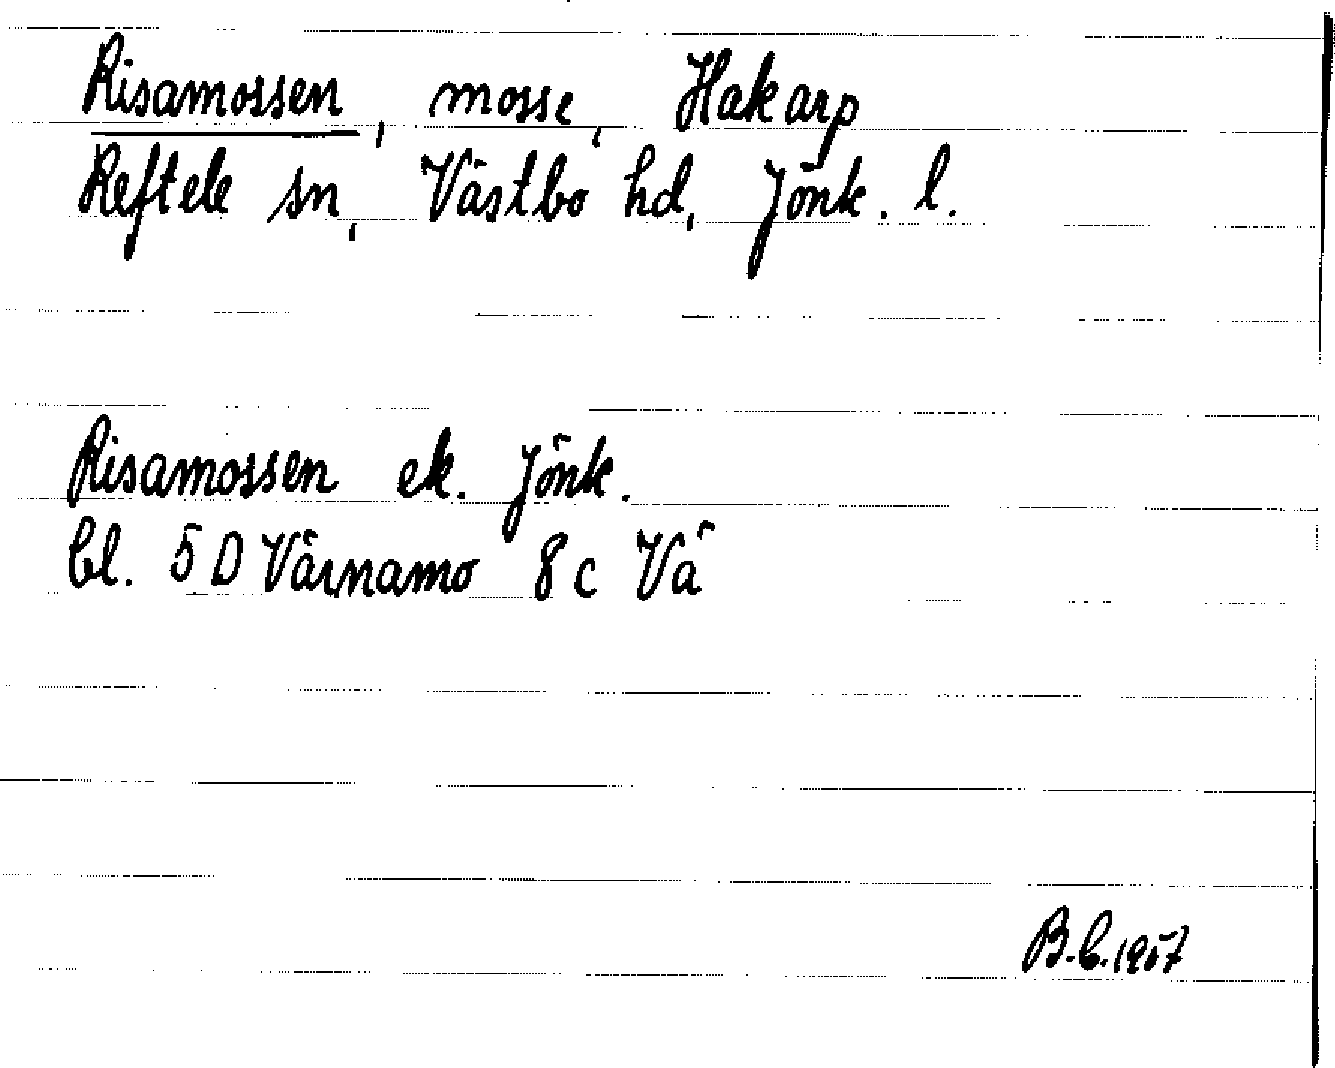 Risamossen, mosse, Hakarp
Reftele sn, Västbo hd, Jönk. l.
Risamossen ek. Jönk.
bl. 5 D Värnamo 8 c Vä
B.C. 1957